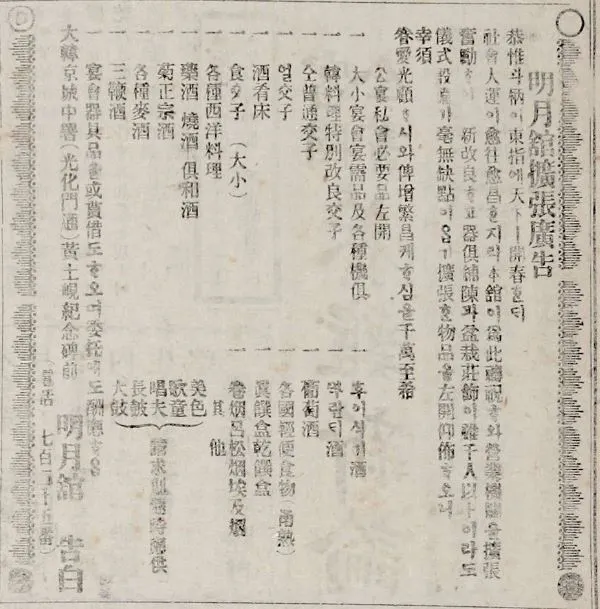 明月舘擴張廣告
恭惟斗柄이東指에天下一開春한되
社會人運이愈往愈昌한지라本舘이爲此禱祝하와營業機關을擴張
奮動하야 新改良하고器俱補陳과盆栽莊飾이雖千人以上이라도
儀式設負가毫無缺點이옵기擴張한物品을左開仰佈하오니
幸須
眷愛光顧하시와俾增繁昌케하심을千萬至希
公宴私會必要品左開
一 大小宴會宴需品及各種機俱
一 韓料理特別改良交子
一 仝普通交子
一 얼交子
一 酒肴床
一 食交子(大小)
一 各種西洋料理
一 藥酒 燒酒 俱和酒
一 菊正宗酒
一 各種麥酒
一 三鞭酒
一 후이식기酒
一 쁘란되酒
一 葡萄酒
一 各國輕便食物(甬熱)
一 眞饌盒乾饌盒
一 卷烟呂松烟埃及烟
其 他
美色
歌童
唱夫
長皷
大皷
請求則臨時應供
一 宴會器具品을或貰借도하오며委托에도酬應하옴
大韓京城中署(光化門通)黃土峴紀念碑前
明月舘 告白